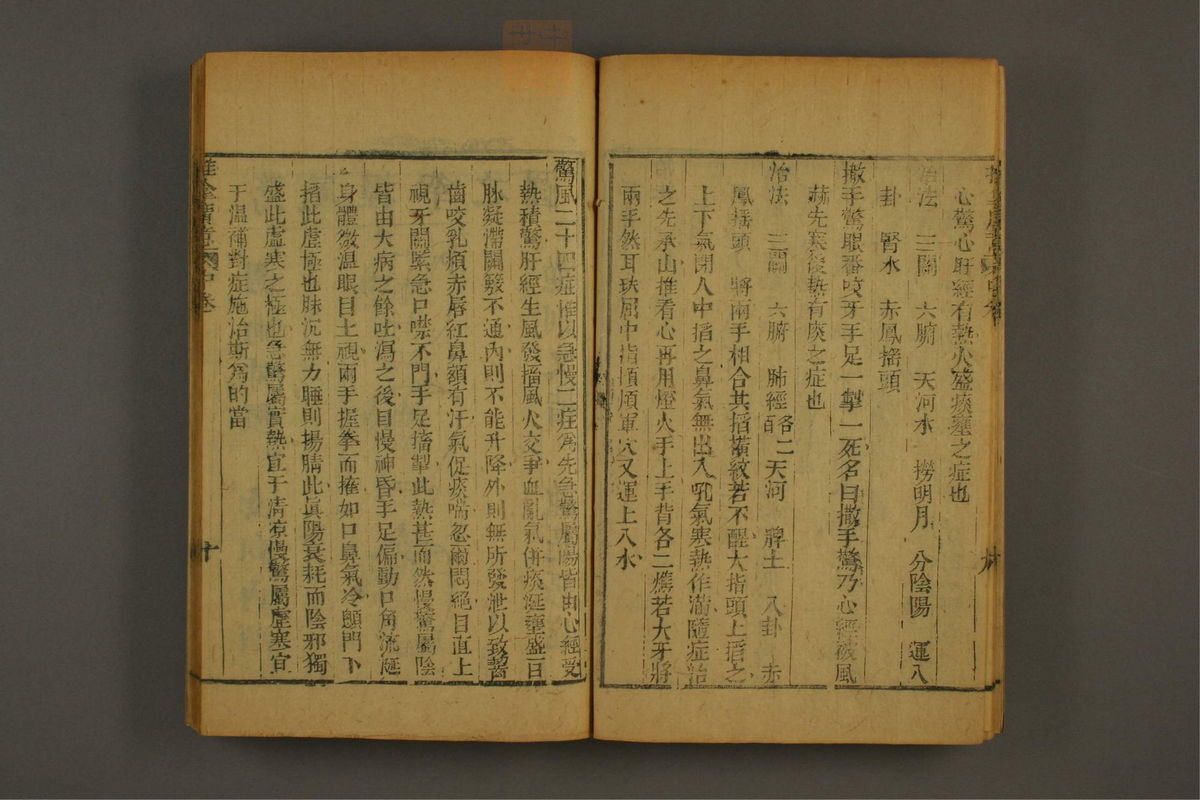 心驚心肝經有熱火盛痰壅之症也
治法 三關 六腑 天河水 撈明月 分陰陽 運八
卦 腎水 赤鳳搖頭
撒手驚眼番咬牙手足一掣一死名曰撒手驚乃心經被風
先寒後熱有痰之症也
治法 三關 六腑 肺經各二百 天河 脾土 八卦 赤
鳳搖頭 將兩手相合其掐橫紋若不醒大指頭上掐之
上下氣閉人中掐之鼻氣無出入吼氣寒熱作滿隨症治
之先承山推看心再用燈火手上手背各二燋若大牙將
兩手然耳珠屈中指頂須軍穴又運上入水
驚風二十四症惟以急慢二症為先急驚屬陽皆由心經受
熱積驚肝經生風發搐風火交爭血亂氣併痰涎壅盛百
脉凝滯關竅不通內則不能升降外則無所發泄以致嚙
齒咬乳煩赤唇紅鼻額有汗氣促痰喘忽爾悶絕目直上
視牙關緊急口噤不門手足搐掣此熱甚而然慢驚屬陰
皆由大病之餘吐瀉之後目慢神昏手足偏動口角流涎
身體微溫眼目上視兩手握拳而搐如口鼻氣冷顖門下
搐此虛極也脉沉無力睡則揚睛此眞陽衰耗而陰邪獨
盛此虛寒之極也急驚屬實熱宜于清凉慢驚屬虛寒宜
于溫補對症施治斯為的當
推拿廣意 中卷 十